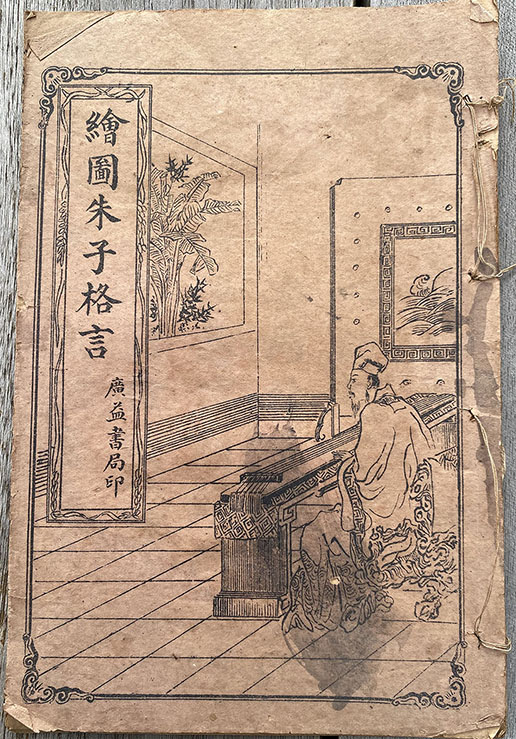 繪圖朱子格言
廣益書局印